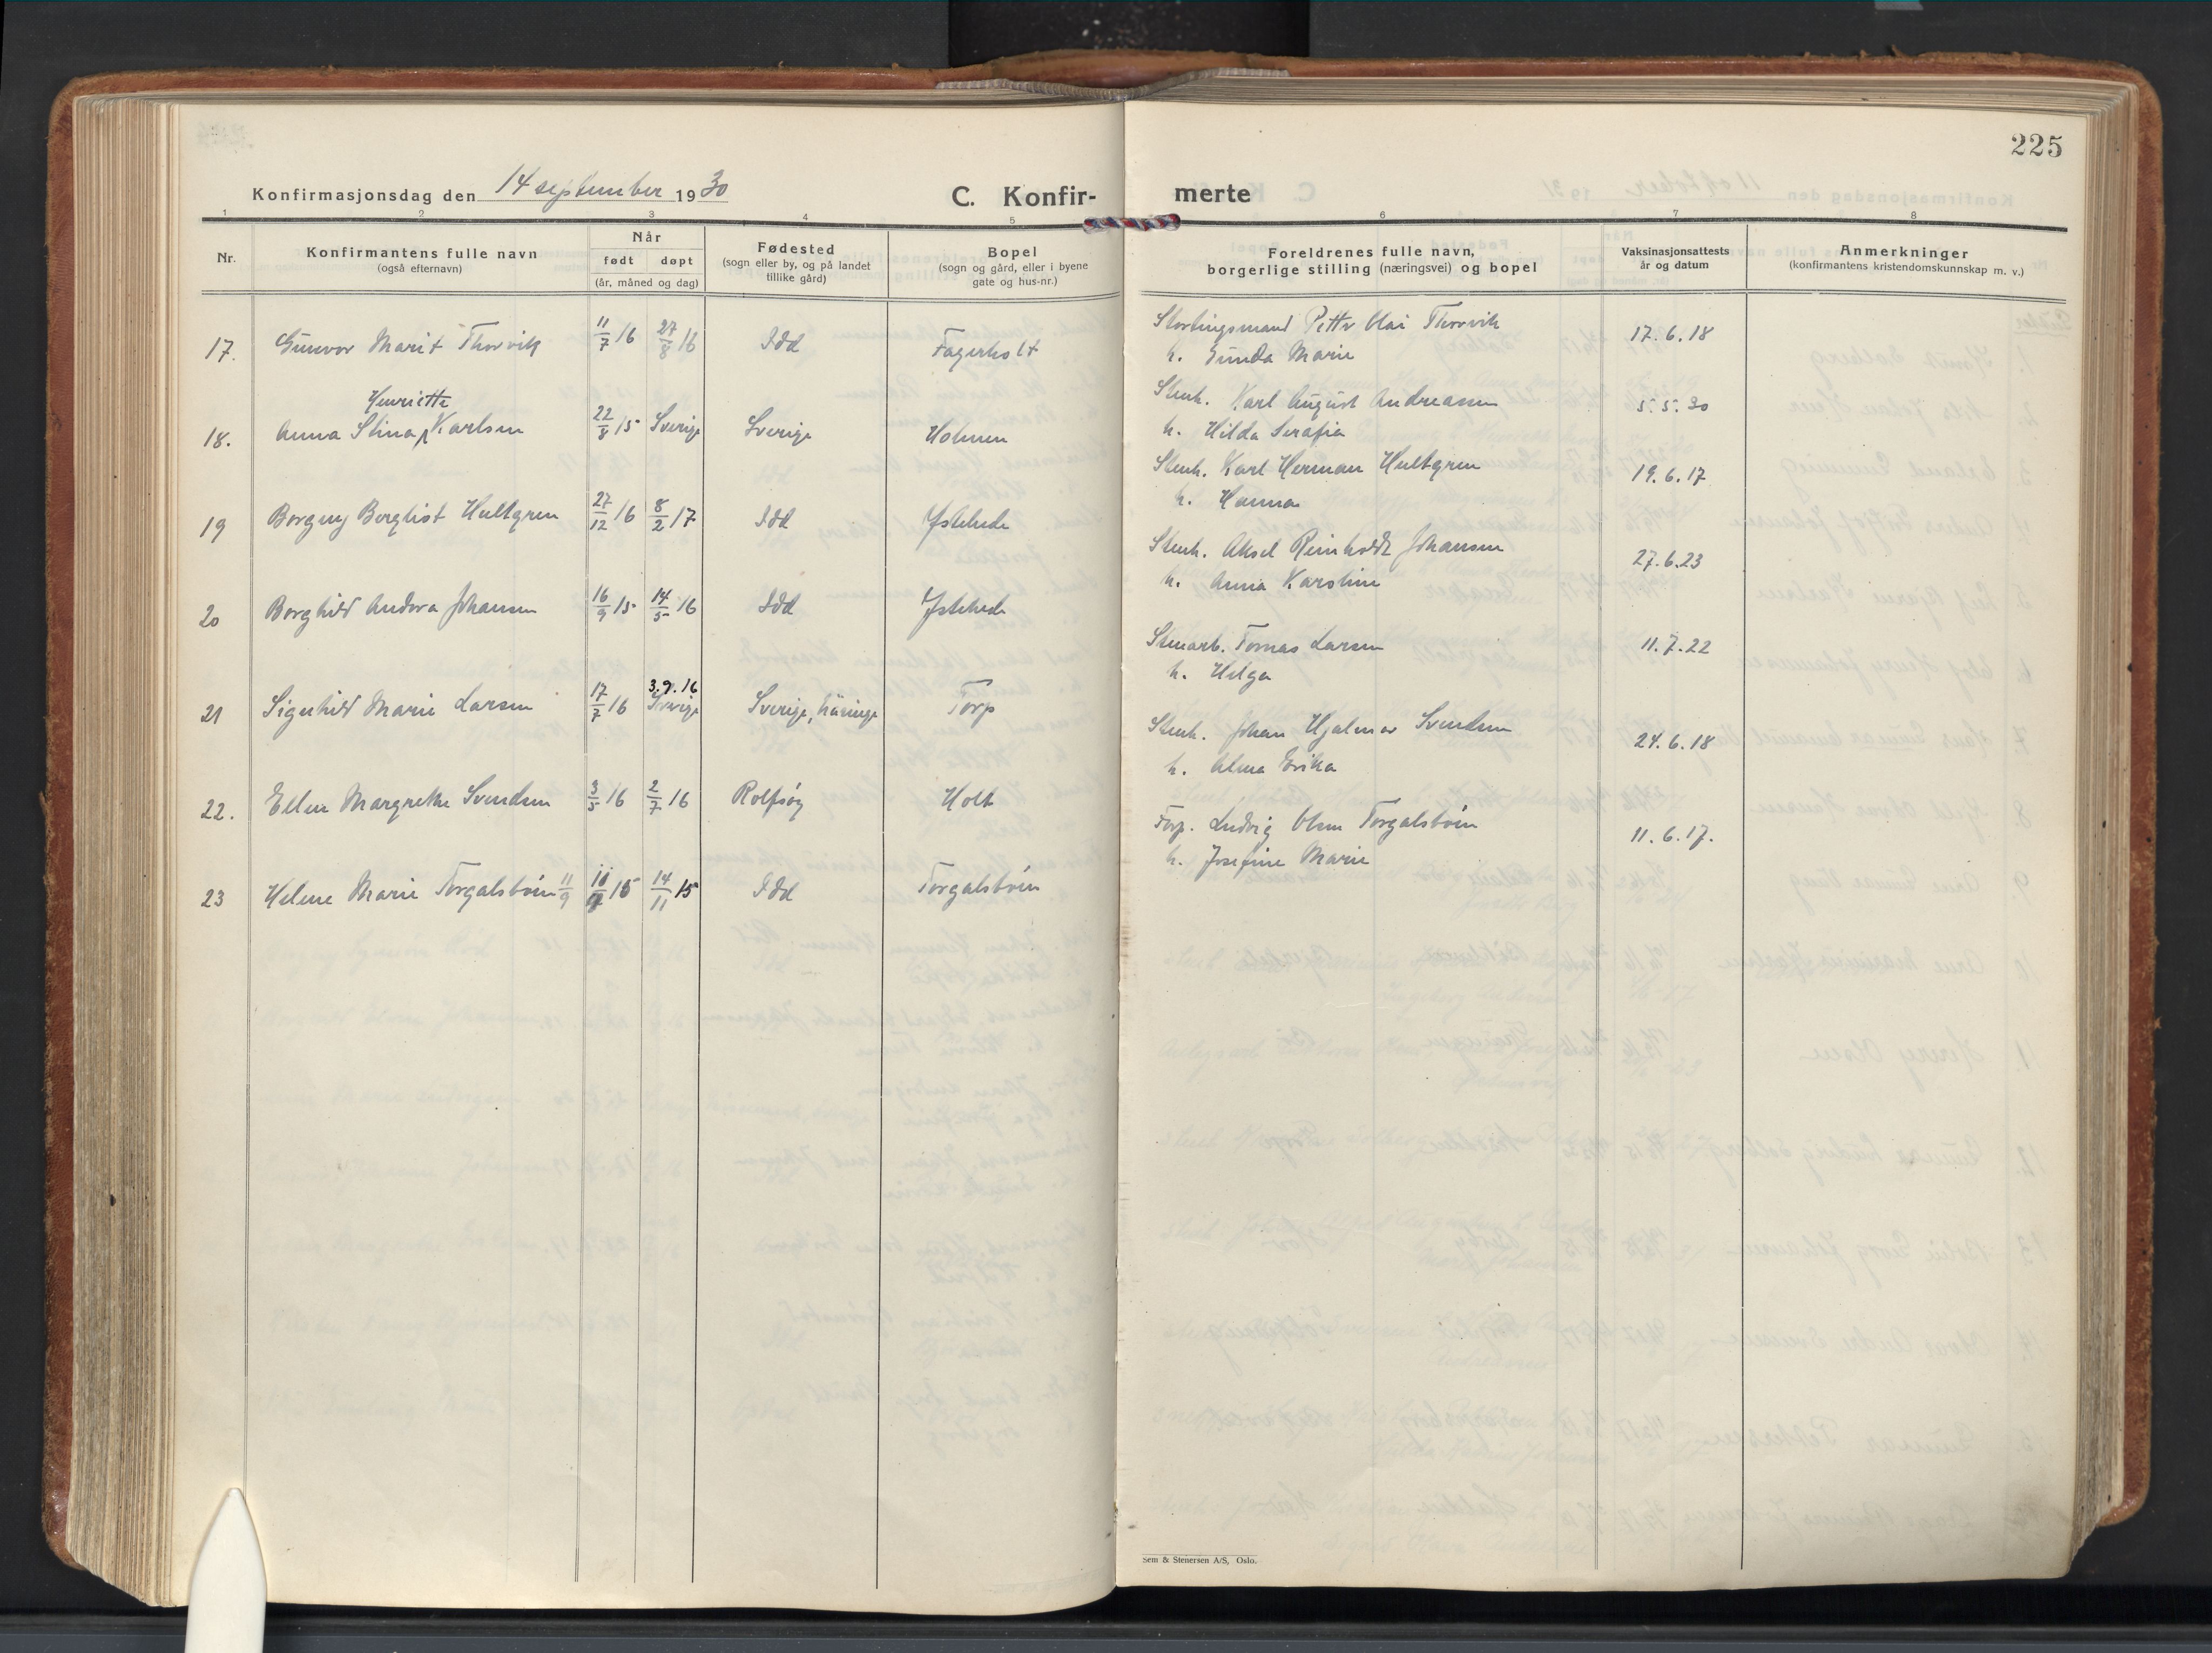 225
Konfirmasjonsdag den 14 september 1930
C. Konfir-
merte
1 2 3 4 5 6 7 8
Nr.
Konfirmantens fulle navn
(også efternavn)
Når
født døpt
(år, måned og dag)
Fødested
(sogn eller by, og på landet
tillike gård)
Bopel
(sogn og gård, eller i byene
gate og hus-nr.)
Foreldrenes fulle navn,
borgerlige stilling (næringsvei) og bopel
Vaksinasjonsattests
år og datum
Anmerkninger
(konfirmantens kristendomskunnskap m. v.)
17. Gunvor Marit Thorvik 11/7 16 27/8 16 Idd Fagerholt
Stortingsmand Petter Olai Thorvik 17.6.18
h. Gunda Marie
Henriette
18. Anna Stina Karlsen 22/8 15 Sverige Sverige Holmen
Stenh. Karl August Andreasen 5.5.30
h. Hilda Serafia
19 Borgny Berglist Hultgren 27/12 16 8/2 17 Idd Ystehede
Stenh. Karl Herman Hultgren 19.6.17
h. Hanna
20 Borghild Andora Johansen 16/9 15 14/5 16 Idd Ystehede
Stenh. Aksel Reinholdt Johansen 27.6.23
h. Anna Karoline
3.9.16
21 Sigrhild Marie Larsen 17/7 16 Sverige Sverige, Näsinge Torp
Stenarb. Tomas Larsen 11.7.22
h. Helga
22. Ellen Margrethe Svendsen 3/5 16 2/7 16 Rolfsøy Holt
Stenh. Johan Hjalmar Svendsen 24.6.18
h. Alma Erika
23 Helene Marie Torgalsbøen 11/9 15 14/11 15 Idd Torgalsbøen
Forp. Ludvig Olsen Torgalsbøen 11.6.17.
h. Josefine Marie
Sem & Stenersen A/S, Oslo.